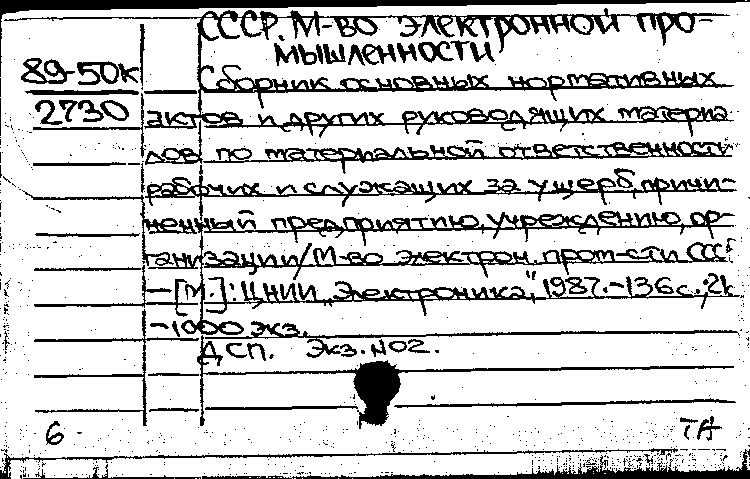 СССР. М-во электронной про-
мышленности
89-50к
2730
Сборник основных нормативных
актов и других руководящих материа
лов по материальной ответственности
рабочих и служащих за ущерб, причи-
ненный предприятию, учреждению, ор-
ганизации/М-во электрон. пром-сти СССР
—[М.]: ЦНИИ „Электроника", 1987.-136с.;21
-1000 экз.
ДСП. Экз. №02.
6 ТА